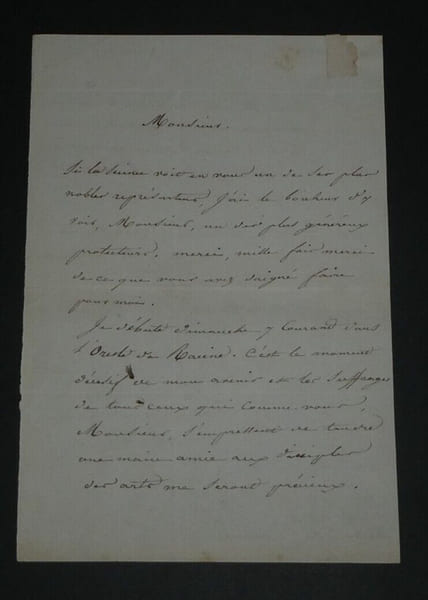 Monsieur.
Si la Science voit en vous un de ses plus
nobles représentans, j'ai le bonheur d'y
voir, Monsieur, un des plus généreux
protecteurs, merci, mille fois merci
de ce que vous avez daigné faire
pour moi.
Je débute Dimanche 7 Courand dans
l'Oreste de Racine. C'est le moment
décisif de mon avenir et les Suffrages
de tous ceux qui comme vous,
Monsieur, s'empressent de tendre
une main amie aux disciples
des arts me seront précieux.